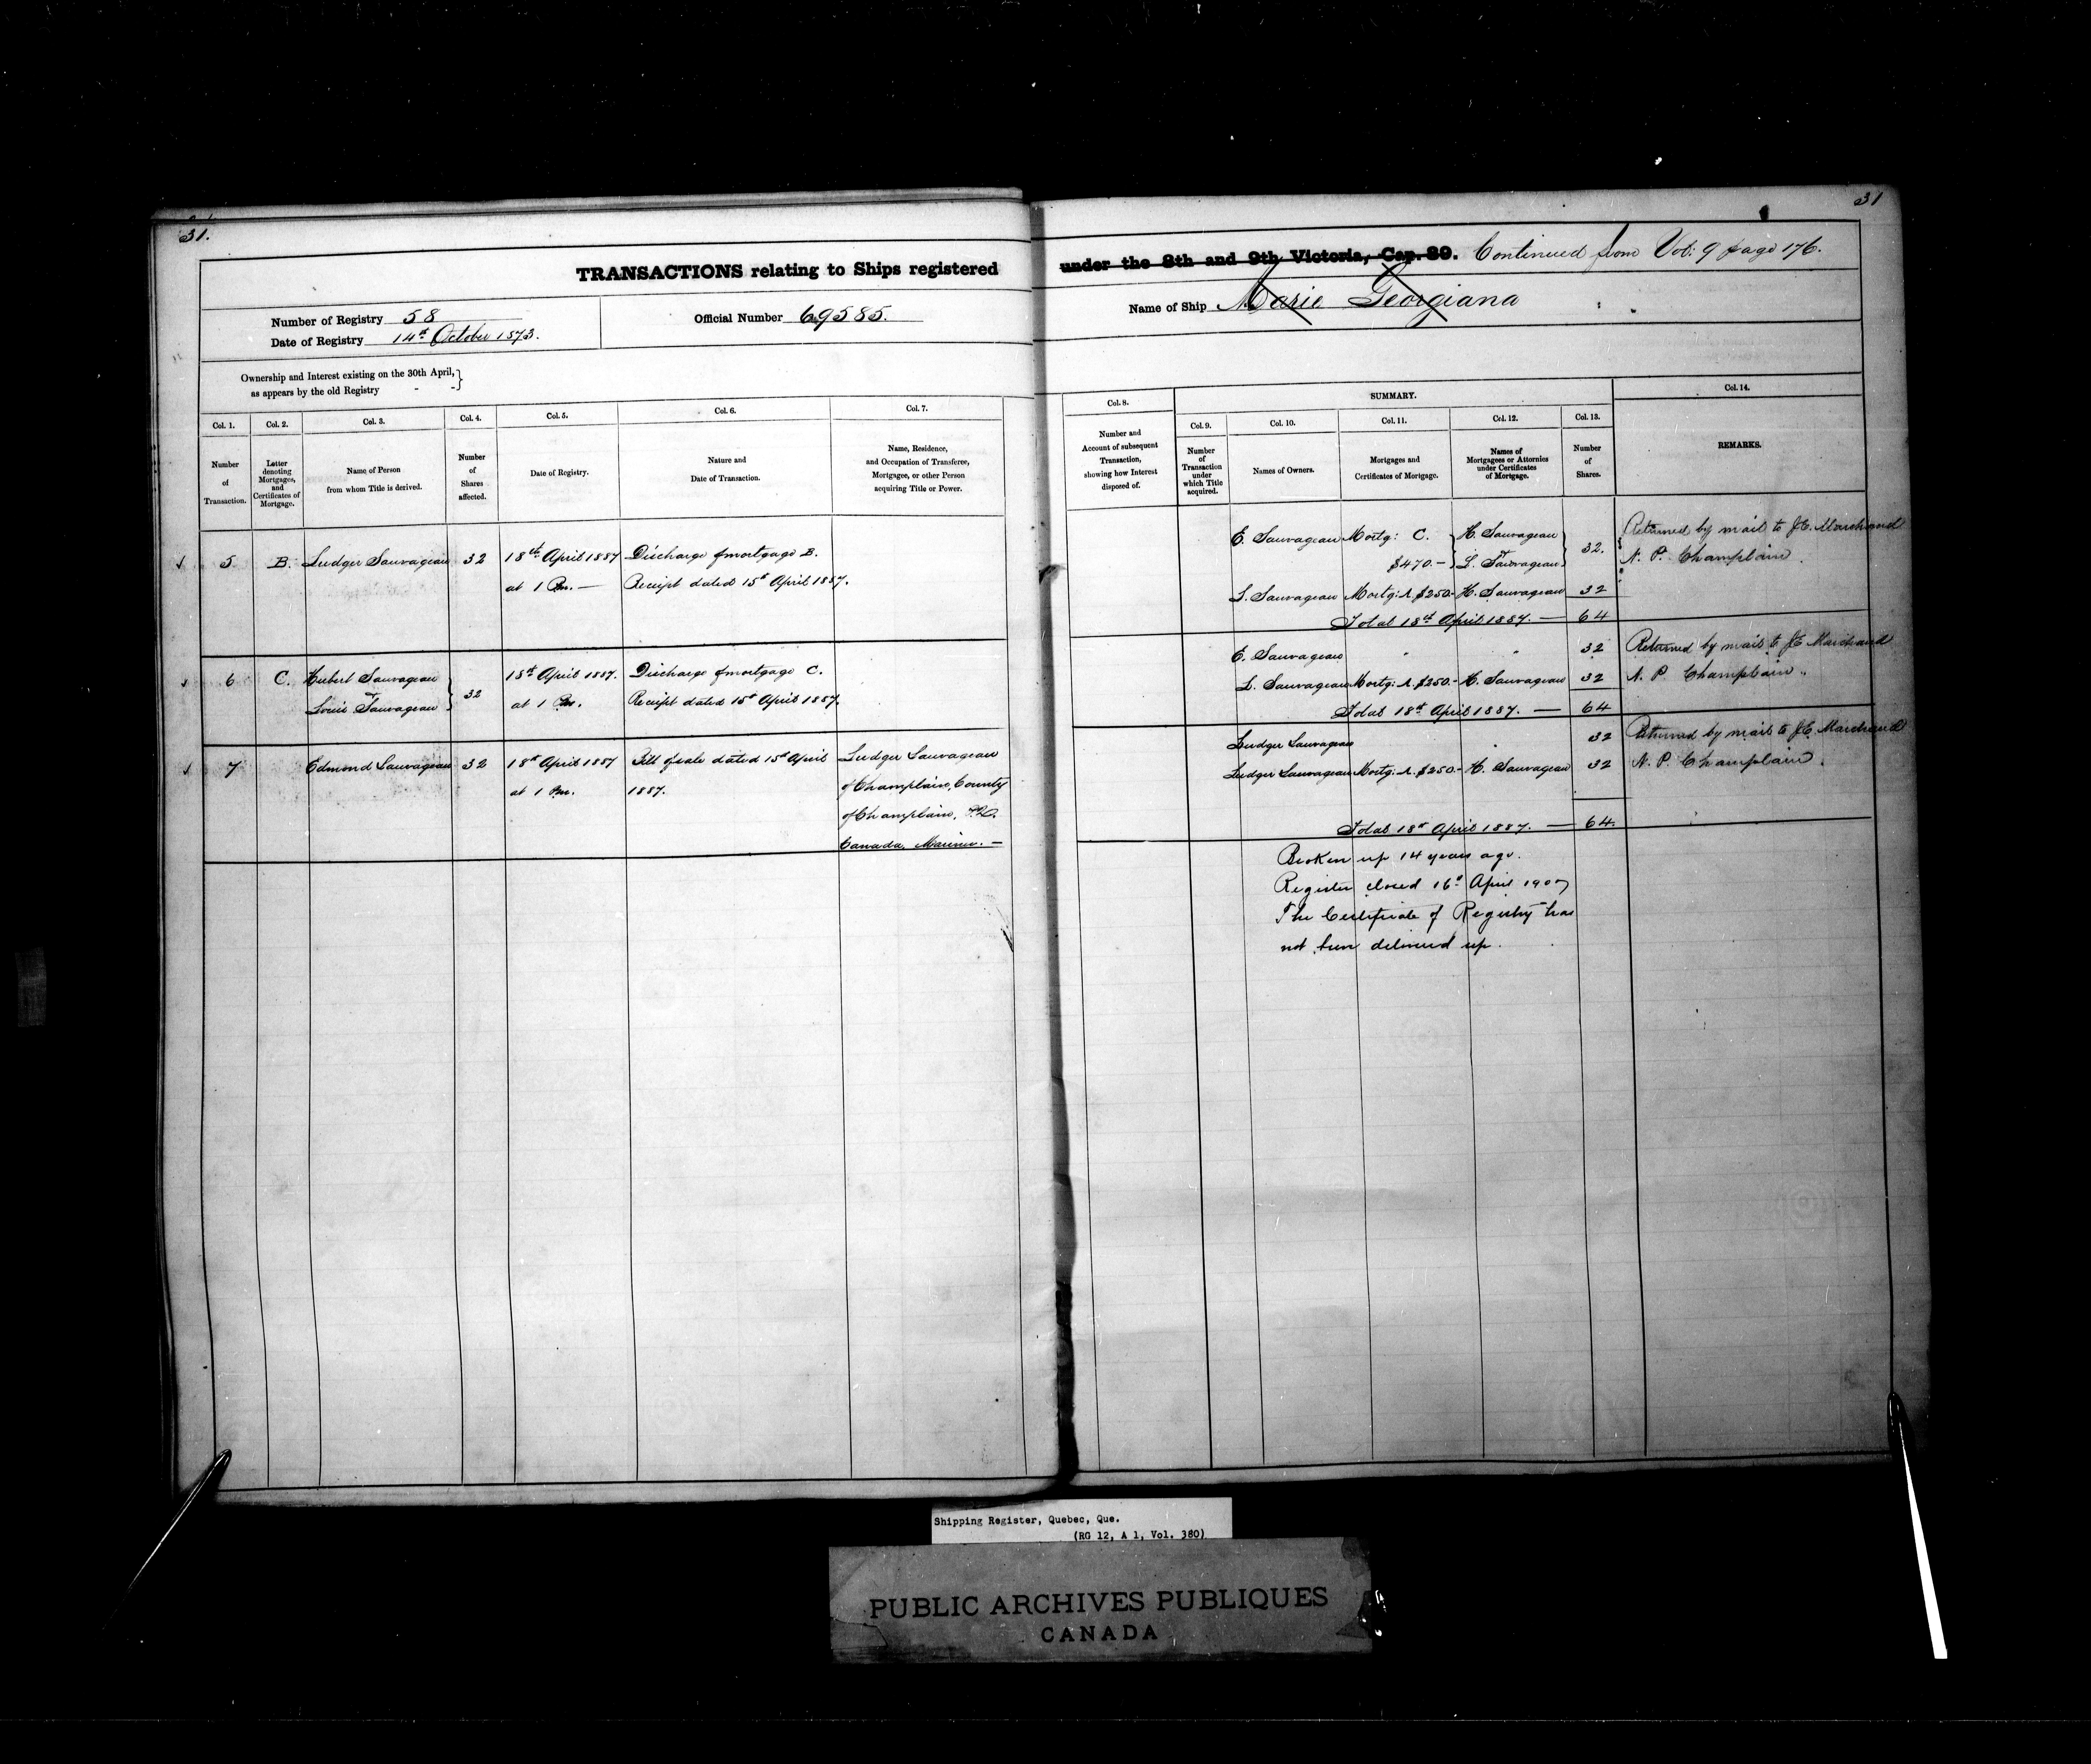 31.
31
TRANSACTIONS relating to Ships registered under the 8th and 9th Victoria, Cap. 89. Continued from Vol: 9 page 176.
Number of Registry 58
Date of Registry 14th October 1873.
Official Number 69585.
Name of Ship Marie Georgiana
Ownership and Interest existing on the 30th April, }
as appears by the old Registry - -
Col. 1.
Number
of
Transaction.
Col. 2.
Letter
denoting
Mortgages,
and
Certificates of
Mortgage.
Col. 3.
Name of Person
from whom Title is derived.
Col. 4.
Number
of
Shares
affected.
Col. 5.
Date of Registry.
Col. 6.
Nature and
Date of Transaction.
Col. 7.
Name, Residence,
and Occupation of Transferee,
Mortgagee, or other Person
acquiring Title or Power.
Col. 8.
Number and
Account of subsequent
Transaction,
showing how Interest
disposed of.
SUMMARY.
Col. 9.
Number
of
Transaction
under
which Title
acquired.
Col. 10.
Names of Owners.
Col. 11.
Mortgages and
Certificates of Mortgage.
Col. 12.
Names of
Mortgagees or Attornies
under Certificates
of Mortgage.
Col. 13.
Number
of
Shares.
Col. 14.
REMARKS.
5 B. Ludger Sauvageau 32 18th April 1887 Discharge of mortgage B.
at 1 Pm. — Receipt dated 15th April 1887.
E. Sauvageau Mortg: C. H. Sauvageau
$470.— L. T. Sauvageau 32.
L. Sauvageau Mortg: A $250.— H. Sauvageau 32
Total 18th April 1887. — 64
Returned by mail to J.E. Marchand
N. P. Champlain.
6 C. Hubert Sauvageau 18th April 1887. Discharge of mortgage C.
Louis T. Sauvageau } 32 at 1 Pm. Receipt dated 15th April 1887.
E. Sauvageau " " 32
L. Sauvageau Mortg: A. $250.— H. Sauvageau 32
Total 18th April 1887. — 64
Returned by mail to J E Marchand
N. P. Champlain.
7 Edmond Sauvageau 32 18th April 1887 Bill of sale dated 15th April
at 1 Pm. 1887.
Ludger Sauvageau
of Champlain, County
of Champlain, P.Q.
Canada, Mariner. —
Ludger Sauvageau 32
Ludger Sauvageau Mortg: A. $250.— H. Sauvageau 32
Total 18th April 1887. — 64.
Returned by mail to J.E. Marchand
N. P. Champlain.
Broken up 14 years ago.
Register closed 16th April 1907
The Certificate of Registry has
not been delivered up.
Shipping Register, Quebec, Que.
(RG 12, A 1, Vol. 380)
PUBLIC ARCHIVES PUBLIQUES
CANADA